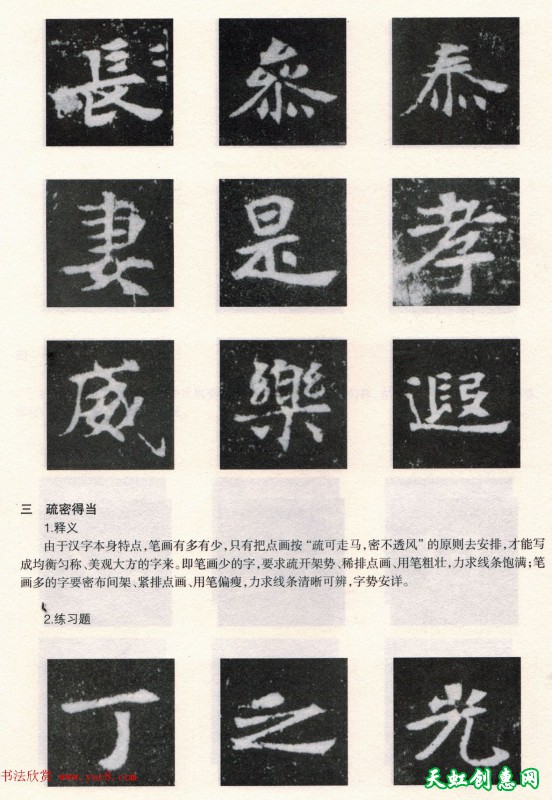 長 叅 泰
妻 是 孝
威 樂 遐
三 疏密得当
1.释义
由于汉字本身特点,笔画有多有少,只有把点画按“疏可走马,密不透风”的原则去安排,才能写
成均衡匀称、美观大方的字来。即笔画少的字,要求疏开架势、稀排点画、用笔粗壮,力求线条饱满;笔
画多的字要密布间架、紧排点画、用笔偏瘦,力求线条清晰可辨、字势安详。
2.练习题
丁 之 光
书法欣赏 www.yac8.com
天虹创惠网